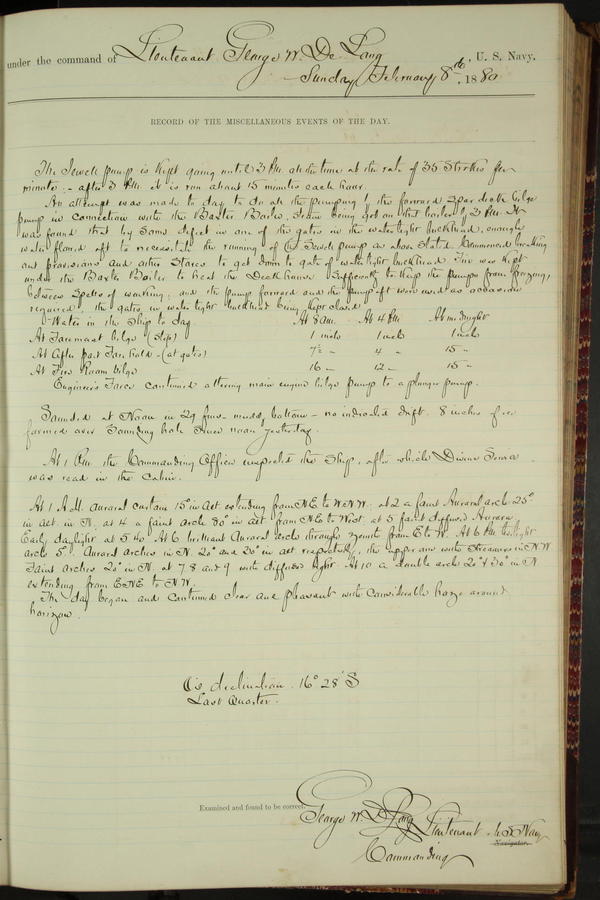 under the command of Lieutenant George W. De Long, U. S. Navy.
Sunday February 8th, 1880
RECORD OF THE MISCELLANEOUS EVENTS OF THE DAY.
The Sewell pump is kept going until 3 P.M. all the time at the rate of 35 Strokes per
minute :- after 3 P.M. it is run about 15 minutes each hour.
An attempt was made to day to do all the pumping by the forward Spar deck bilge
pump in connection with the Baxter Boiler, Steam being got on that boiler by 2 P.M. It
was found that by some defect in one of the gates in the watertight bulkhead, enough
water flowed aft to necessitate the running of the Sewell pump as above stated. Commenced breaking
out provisions and other Stores to get down to gate of watertight bulkhead. Fire was kept
under the Baxter Boiler to heat the Deckhouse Sufficiently to keep the pumps from freezing,
between Spells of working; and the pump forward and the pump aft were used as occasion
required, the gates in water tight bulkhead being kept closed.
Water in the Ship to day At 8 A.M. At 4 P.M. At midnight
At Foremast bilge (Ship) 1 inch 1 inch 1 inch
At After part Fore hold - (at gates) 7½ " 4 " 15 "
At Fire Room bilge 16 " 12 " 15 "
Engineer's Force continued altering main engine bilge pump to a plunger pump.
Sounded at Noon in 29 fms - muddy bottom - no indicated drift. 8 inches of ice
formed over Sounding hole Since noon yesterday.
At 1 P.M. the Commanding Officer inspected the Ship, after which Divine Service
was read in the Cabin.
At 1 A.M. auroral curtain 15° in alt extending from N.E. to W.N.W. at 2 a faint Auroral arch 25°
in alt. in N. at 4 a faint arch 30° in alt from N.E. to West. at 5 faint diffused Aurora
Early daylight at 5 40. At 6 brilliant Auroral arch through zenith from E. to W. At 6 P.M.
arch 5°. Auroral arches in N. 20° and 30° in alt respectively, the upper one with Streamers in N.W.
Faint arches 20° in N. at 7. 8 and 9 with diffused light. At 10 a double arch 20° & 30° in N
extending from E.N.E. to N.W.
The day began and continued clear and pleasant with Considerable haze around
horizon.
declination. 16° 28' S
Last Quarter.
Examined and found to be correct.
George W. De Long Lieutenant U.S. Navy
Navigator.
Commanding